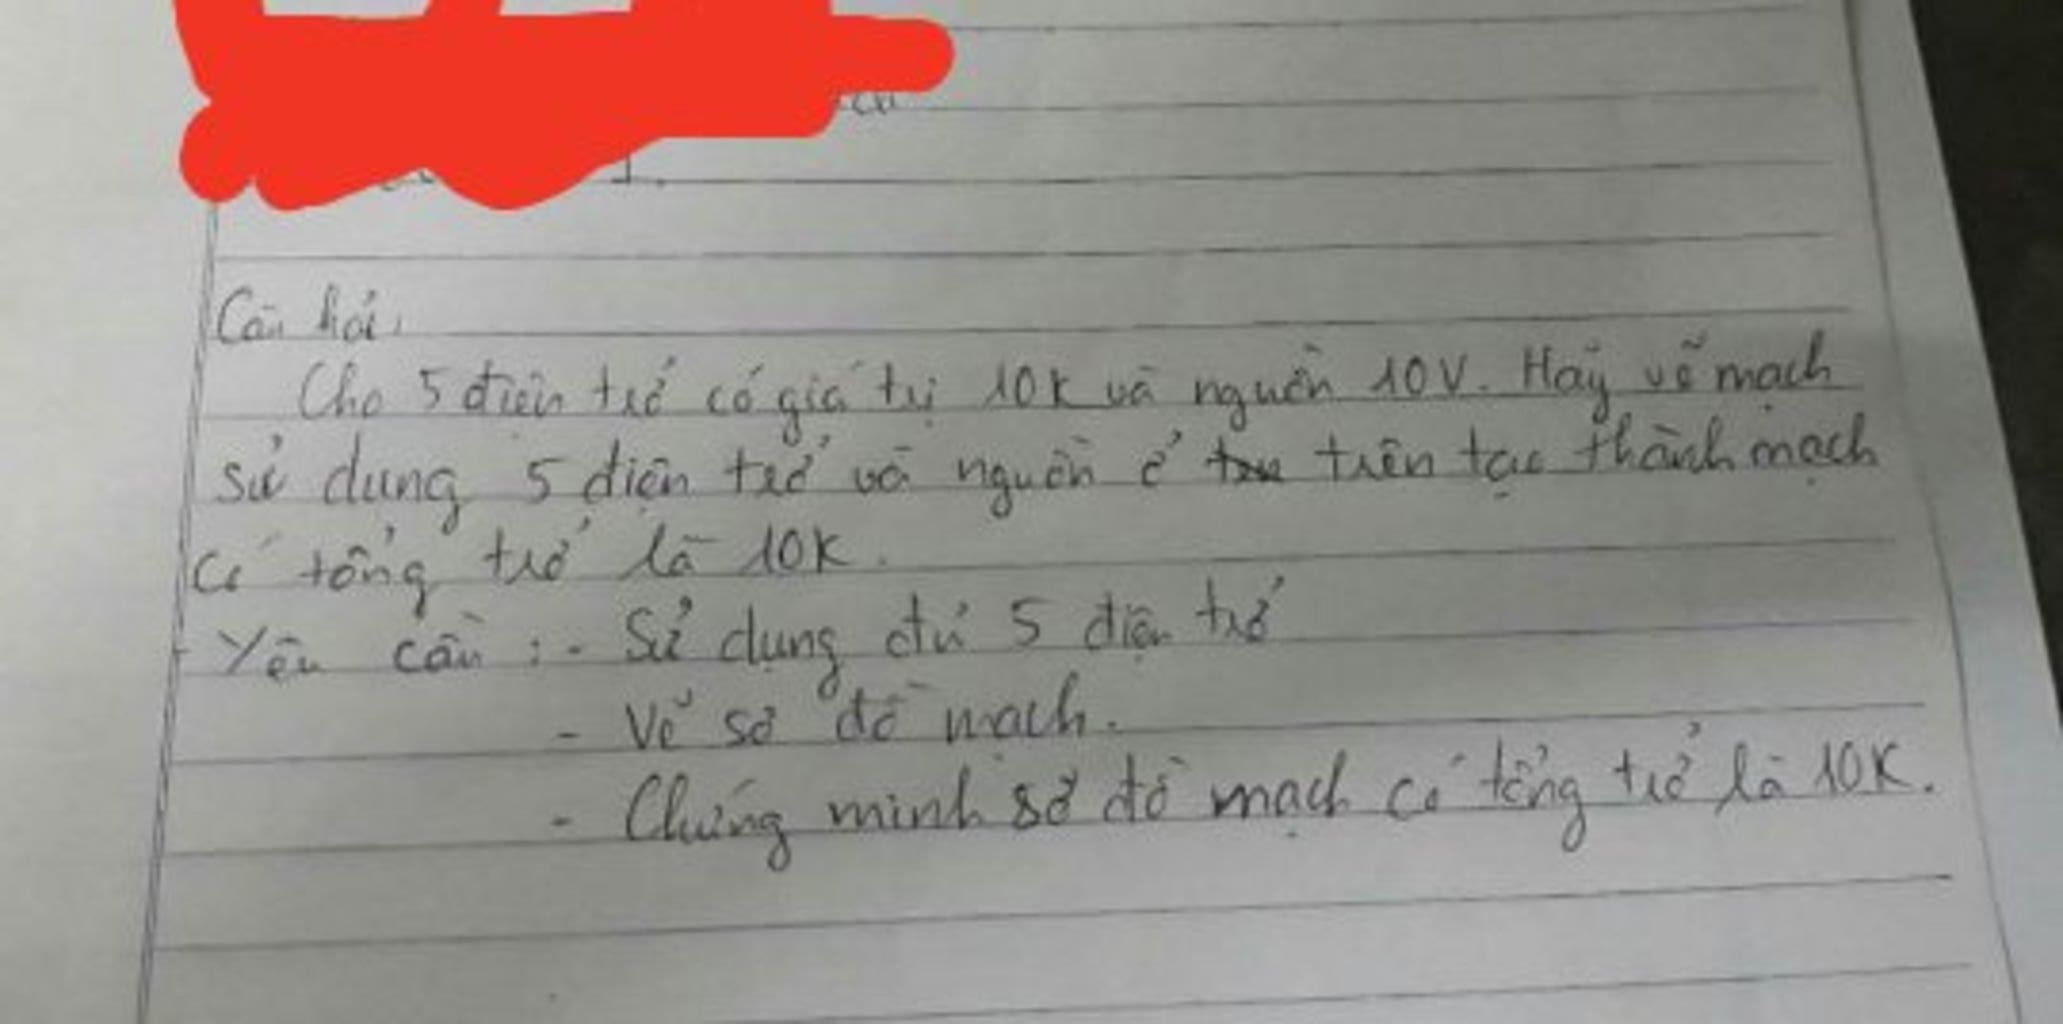 Câu hỏi:
Cho 5 điện trở có giá trị 10K và nguồn 10V. Hãy vẽ mạch
sử dụng 5 điện trở và nguồn ở trên tạo thành mạch
có tổng trở là 10K.
Yêu cầu : - Sử dụng đủ 5 điện trở
- Vẽ sơ đồ mạch.
- Chứng minh sơ đồ mạch có tổng trở là 10K.